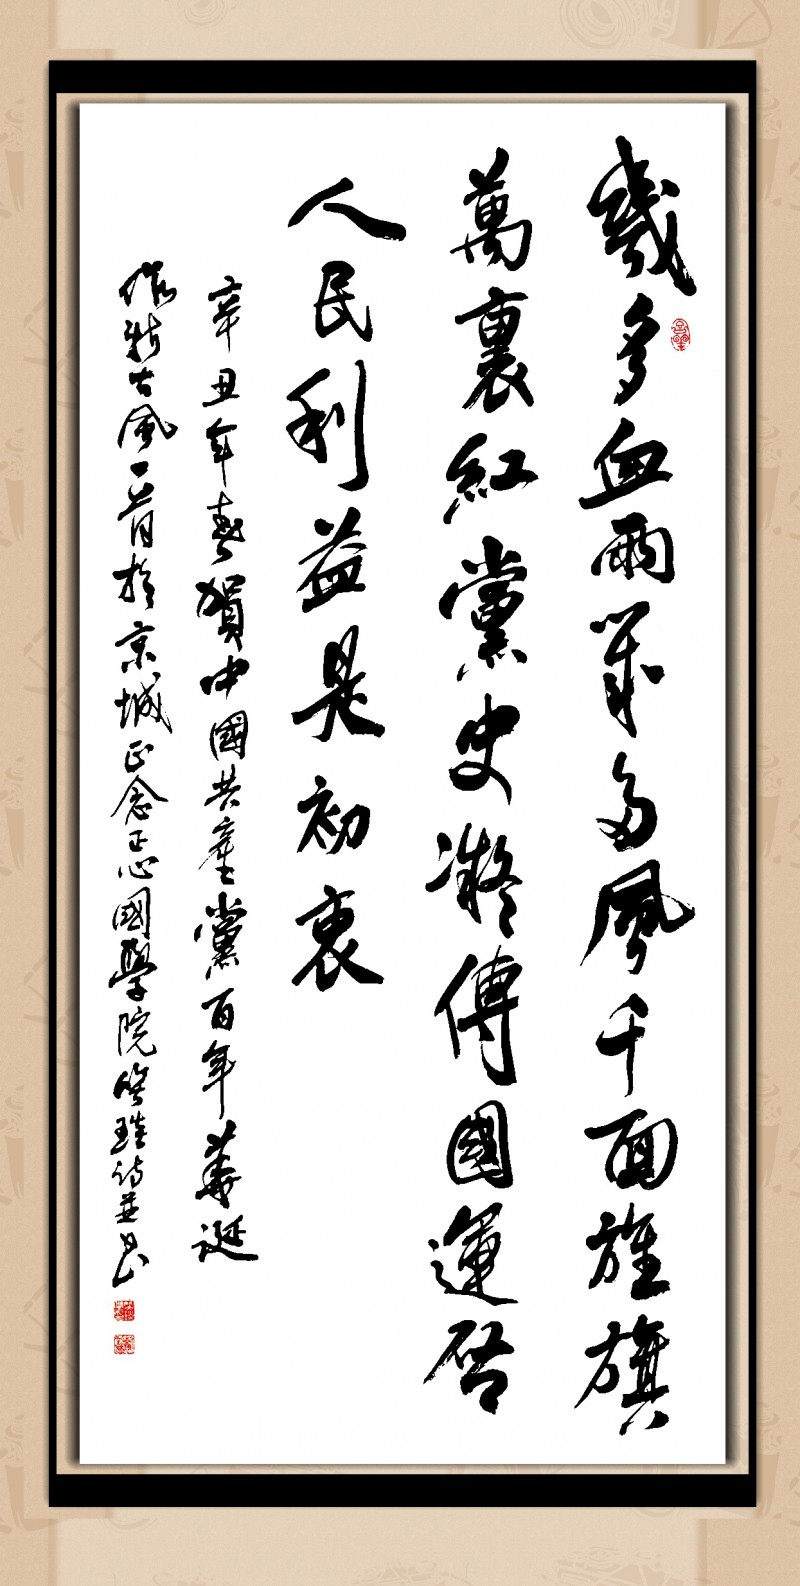 幾多血雨幾多風千面旌旗
萬裏紅黨史凝傳國運启
人民利益是初衷
辛丑年春賀中國共產黨百年華誕
作新古風一首於京城正念正心國學院詩並書